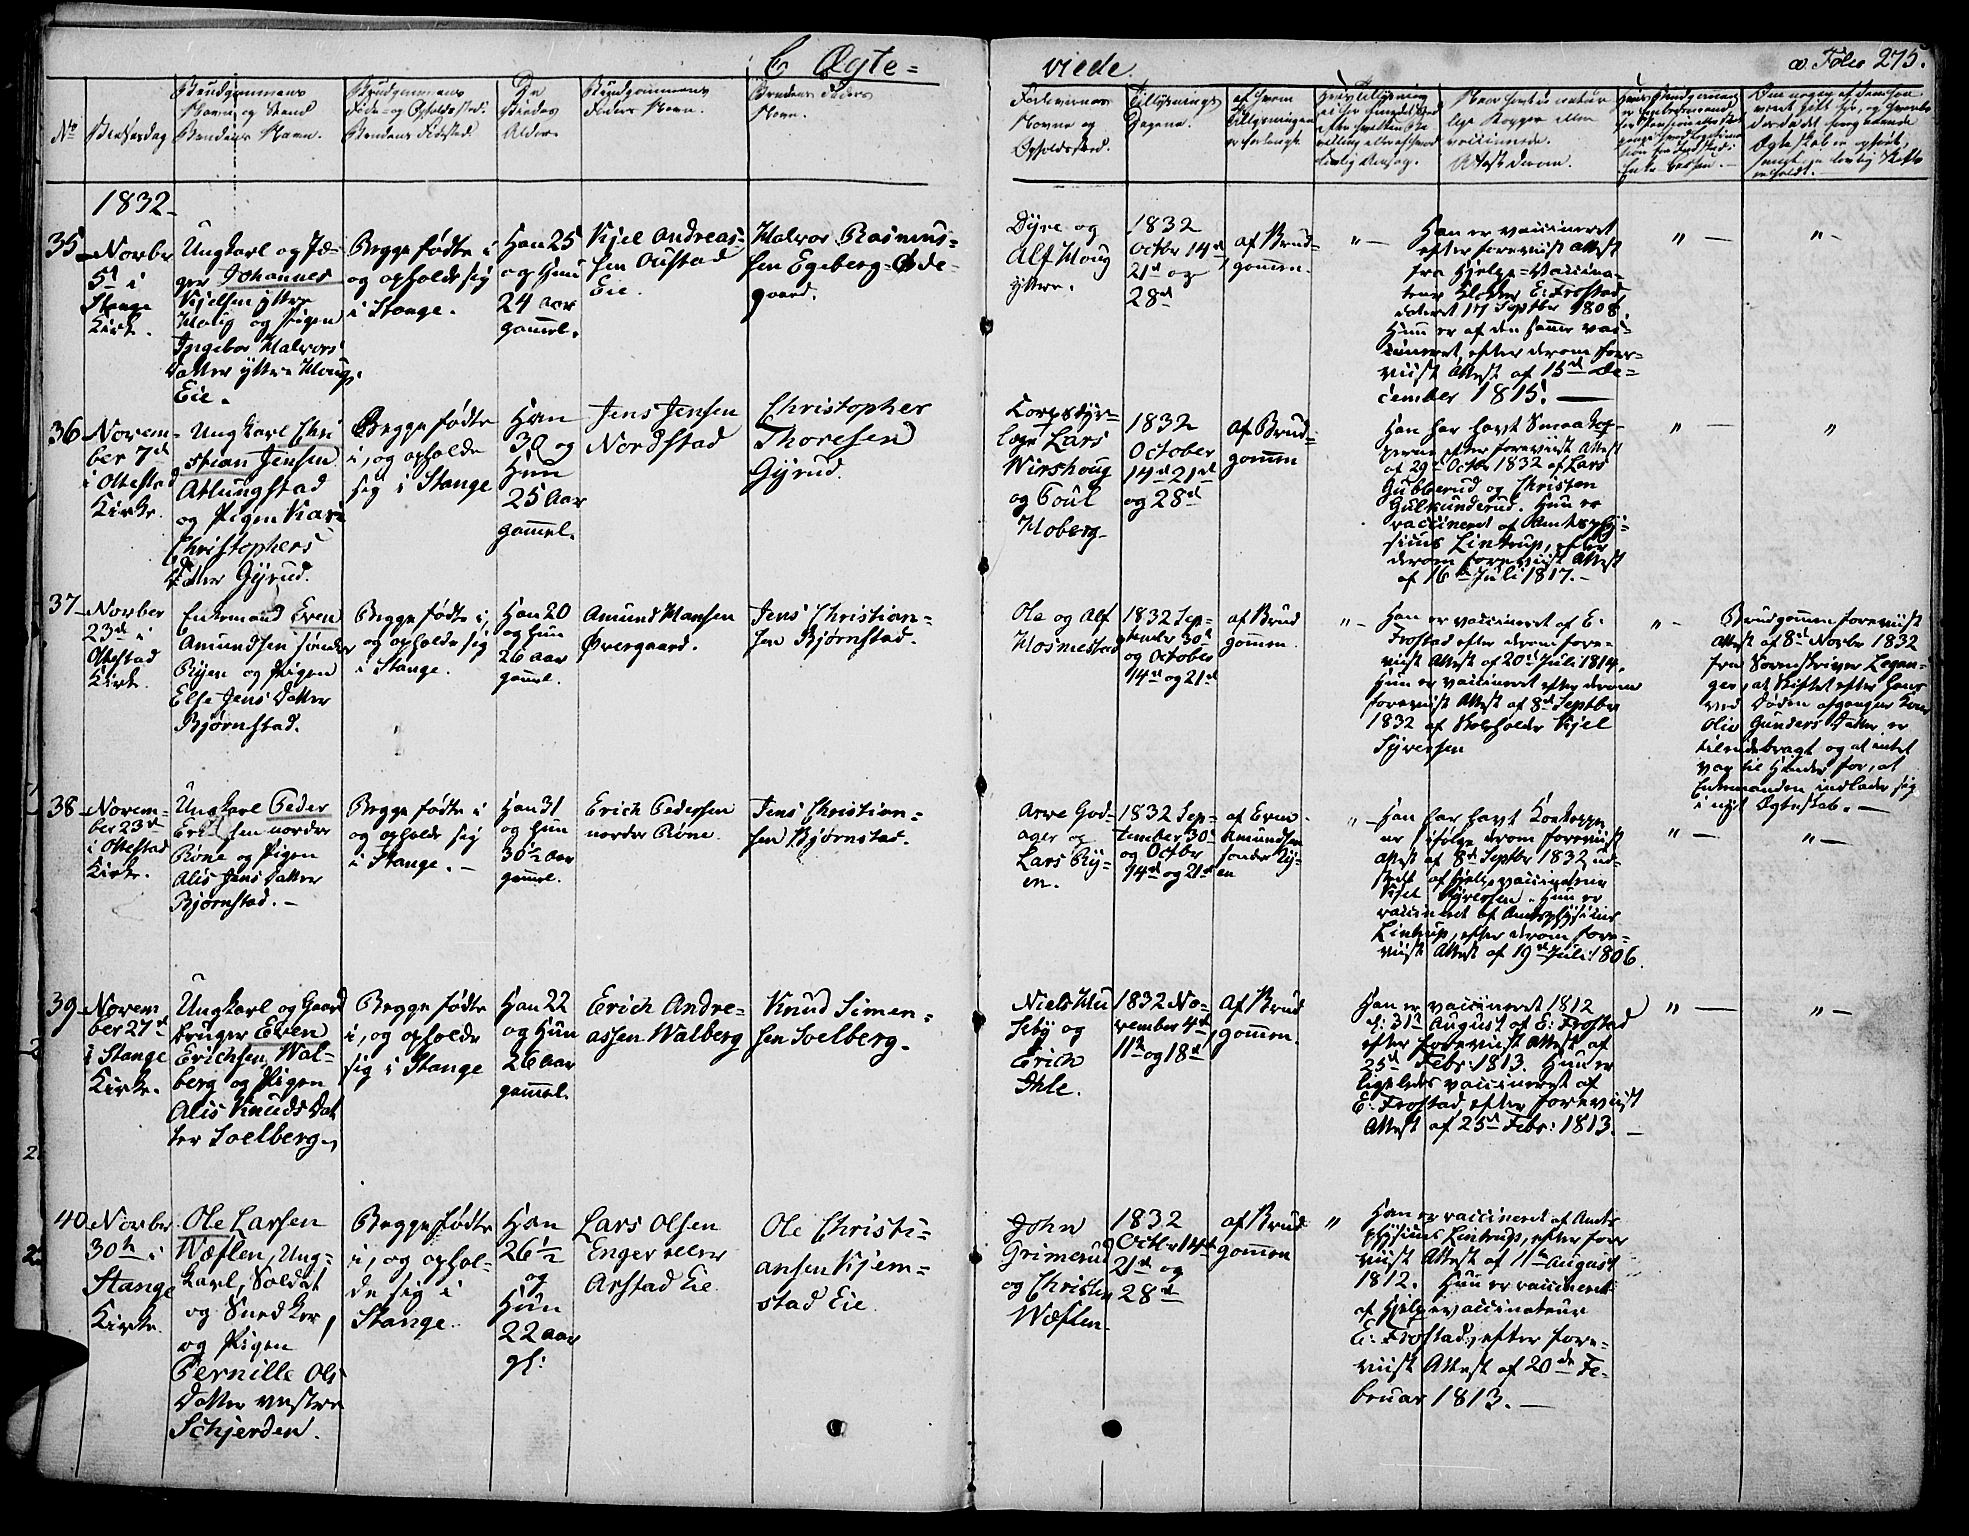 C Ægte=
viede.
a Folio 275.
No
Vielsesdag
Brudgommens
Navn og Stand
Brudens Navn.
Brudgommens
Føde- og Opholdssted:
Brudens Fødested:
De
Viedes
Alder.
Brudgommens
Faders Navn.
Brudens Faders
Navn.
Forlovernes
Navne og
Opholdssted.
Tillysnings
Dagene.
af hvem
Tillysningen
er forlangt.
Naar havt de natur
lige Kopper eller
vaccinerede.
Attest derom.
1832
35
Novbr
5t i
Stange
Kirke.
Ungkarl og Jæ-
ger Johannes
Kjelsen yttre
Houg og Pigen
Ingebor Halvors
Datter yttre Houg
Eie.
Begge fødte i
og opholde sig
i Stange.
Han 25
og Hun
24 aar
gammel.
Kjel Andreas-
sen Oustad
Eie.
Halvor Rasmus=
sen Egeberg=Øde-
gaard.
Dyre og
Alf Houg
yttre.
1832
Octbr 14de
21de og
28de
af Brud-
gommen.
" —
Han er vaccineret
efter foreviist Attest
fra Hjelpe=Vaccina-
teur Klokker E: Frostad,
dateret 17 Septbr 1808.
Hun er af den samme vac-
cineret, efter derom fore-
viist Attest af 15de De=
cember 1815. —
" —
" —
36
Novem-
ber 7de
i Ottestad
Kirke.
Ungkarl Chri
stian Jensen
Atlungstad
og Pigen Kari
Christophers
Datter Gyrud.
Begge fødte
i, og opholde
sig i Stange
Han
30 og
Hun
25 Aar
gammel.
Jens Jensen
Nordstad
Christopher
Thoresen
Gyrud.
Corpsdyr=
læge Lars
Wirshoug
og Poul
Hoberg
1832
October
14de 21de
og 28de
af Brud-
gommen
Han har havt Smaakop-
perne efter foreviist Attest
af 29de Octbr 1832 af Lars
Gubberud og Christen
Gulkunderud. Hun er
vaccineret af Amtsphy-
sicus Lintrup, efter
derom foreviist Attest
af 16de Juli 1817. —
" —
"
37
Novber
23de i
Ottestad
Kirke.
Enkemand Even
Amundsen sønder
Ryen og Pigen
Else Jens Datter
Bjørnstad.
Begge fødte i,
og opholde sig
i Stange.
Han 20
og Hun
26 aar
gammel.
Amund Hansen
Øvergaard.
Jens Christian=
sen Bjørnstad.
Ole og Alf
Hosmestad
1832 Sep-
tember 30te
og October
14de og 21de
af Brud
gommen.
" —
Han er vaccineret af E:
Frostad efter derom fore-
viist Attest af 20de Juli 1814.
Hun er vaccineret efter derom
foreviist Attest af 8de Septber
1832 af Kjel
Syversen
" —
Brudgommen foreviist
Attest af 8de Novbr 1832
fra Sorenskriver
at Skiftet efter hans
ved Døden afgangne Kone
Olia Gunders Datter er
tilendebragt og at intet
var til Hinder for, at
Enkemanden indlader sig
i nyt Ægteskab. —
38
Novem-
ber 23de
i Ottestad
Kirke.
Ungkarl Peder
Erichsen nordre
Røne og Pigen
Alis Jens Datter
Bjørnstad. —
Begge fødte i
og opholde sig
i Stange. —
Han 31
og Hun
30½ aar
gammel.
Erich Pedersen
nordre Røne.
Jens Christian-
sen Bjørnstad.
Arne God-
ager og
Lars Ry-
en.
1832 Sep-
tember 30te
og Octbr
14de og 21de
af Even
Amundsen
sønder Ry-
en
" —
Han har havt Kokopper
ne ifølge derom foreviist
Attest af 8de Septbr 1832 ud-
stedt af Hjelpevaccinateur
Kjel Syversen. Hun er
vaccineret af Amtsphysicus
Lintrup, efter derom fore=
viist Attest af 19de Juli 1806.
" —
" —
39
Novem
ber 27de
i Stange
Kirke.
Ungkarl og Gaard
bruger Even
Erichsen Wal-
berg og Pigen
Alis Knuds Dat
ter Soelberg.
Begge fødte
i, og opholde
sig i Stange
Han 22
og Hun
26 aar
gammel.
Erich Andre-
assen Walberg
Knud Simen-
sen Soelberg.
Niels Hu
seby og
Erich
Ihle.
1832 No-
vember 4de
11te og 18de
af Brud
gommen.
Han er vaccineret 1812
d: 31te August af E: Frostad
efter foreviist Attest af
25de Febr: 1813. Hun er
ligeledes vaccineret af
E: Frostad, efter foreviist
Attest af 25de Febr: 1813. —
" —
" —
40
Novbr
30te i
Stange
Kirke
Ole Larsen
Wæflen, Ung-
karl, Soldat
og Snedker,
og Pigen
Pernille Ols
Datter vestre
Schjerden.
Begge fødte
i, og ophol-
de sig i
Stange.
Han
26½
og
Hun
22 aar
gl:
Lars Olsen
Enger eller
Arstad Eie
Ole Christi-
ansen Kjem=
stad Eie
John
Grimerud
og Christen
Wæflen.
1832
Octbr 14de
21de og
28de
af Brud
gommen
"
Han er vaccineret af Amts
physicus Lintrup, efter fore
viist Attest af 11te August
1812. Hun er vaccineret
af Hjelpevaccinateur
E: Frostad, efter fore-
viist Attest af 20de Fe-
bruar 1813. —